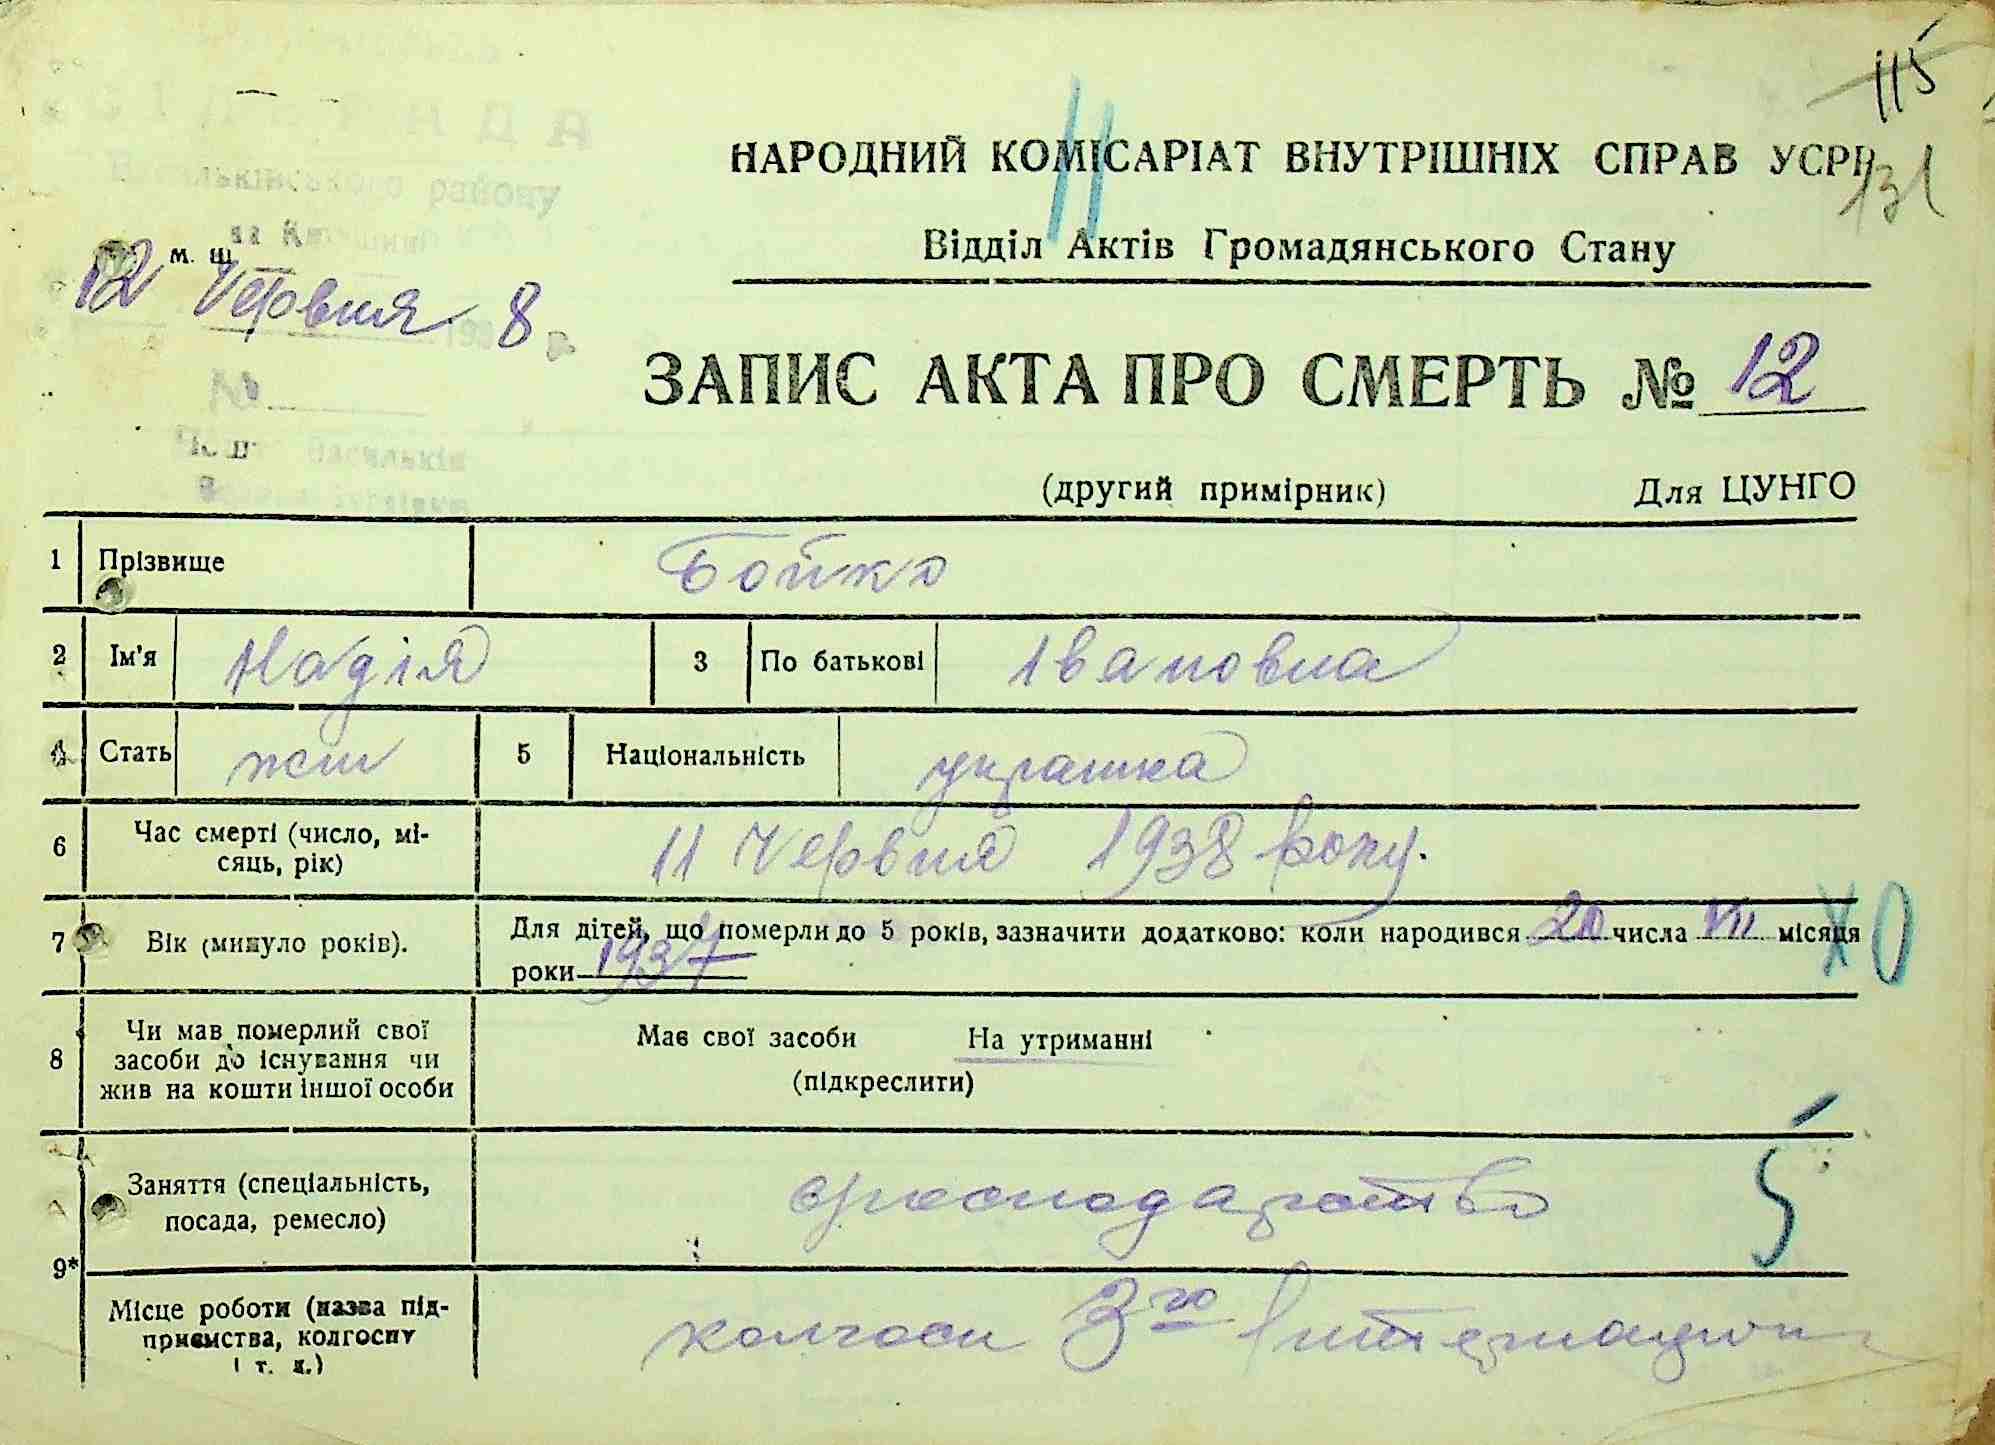 115
НАРОДНИЙ КОМІСАРІАТ ВНУТРІШНІХ СПРАВ УСРР
131
11
Відділ Актів Громадянського Стану
Васильківського району
12 м. ц. Червня 1938 р.
ЗАПИС АКТА ПРО СМЕРТЬ № 12
№
(другий примірник) Для ЦУНГО
1 Прізвище Бойко
2 Ім'я Надія 3 По батькові Івановна
4 Стать жін 5 Національність українка
6 Час смерті (число, мі-
сяць, рік) 11 Червня 1938 року.
7 Вік (минуло років). Для дітей, що померли до 5 років, зазначити додатково: коли народився 20 числа VII місяця
роки 1937
X0
8 Чи мав померлий свої
засоби до існування чи
жив на кошти іншої особи
Має свої засоби На утриманні
(підкреслити)
9* Заняття (спеціальність,
посада, ремесло)
5
Місце роботи (назва під-
приємства, колгоспу
і т. д.)
колгосп 3го Інтернаціон